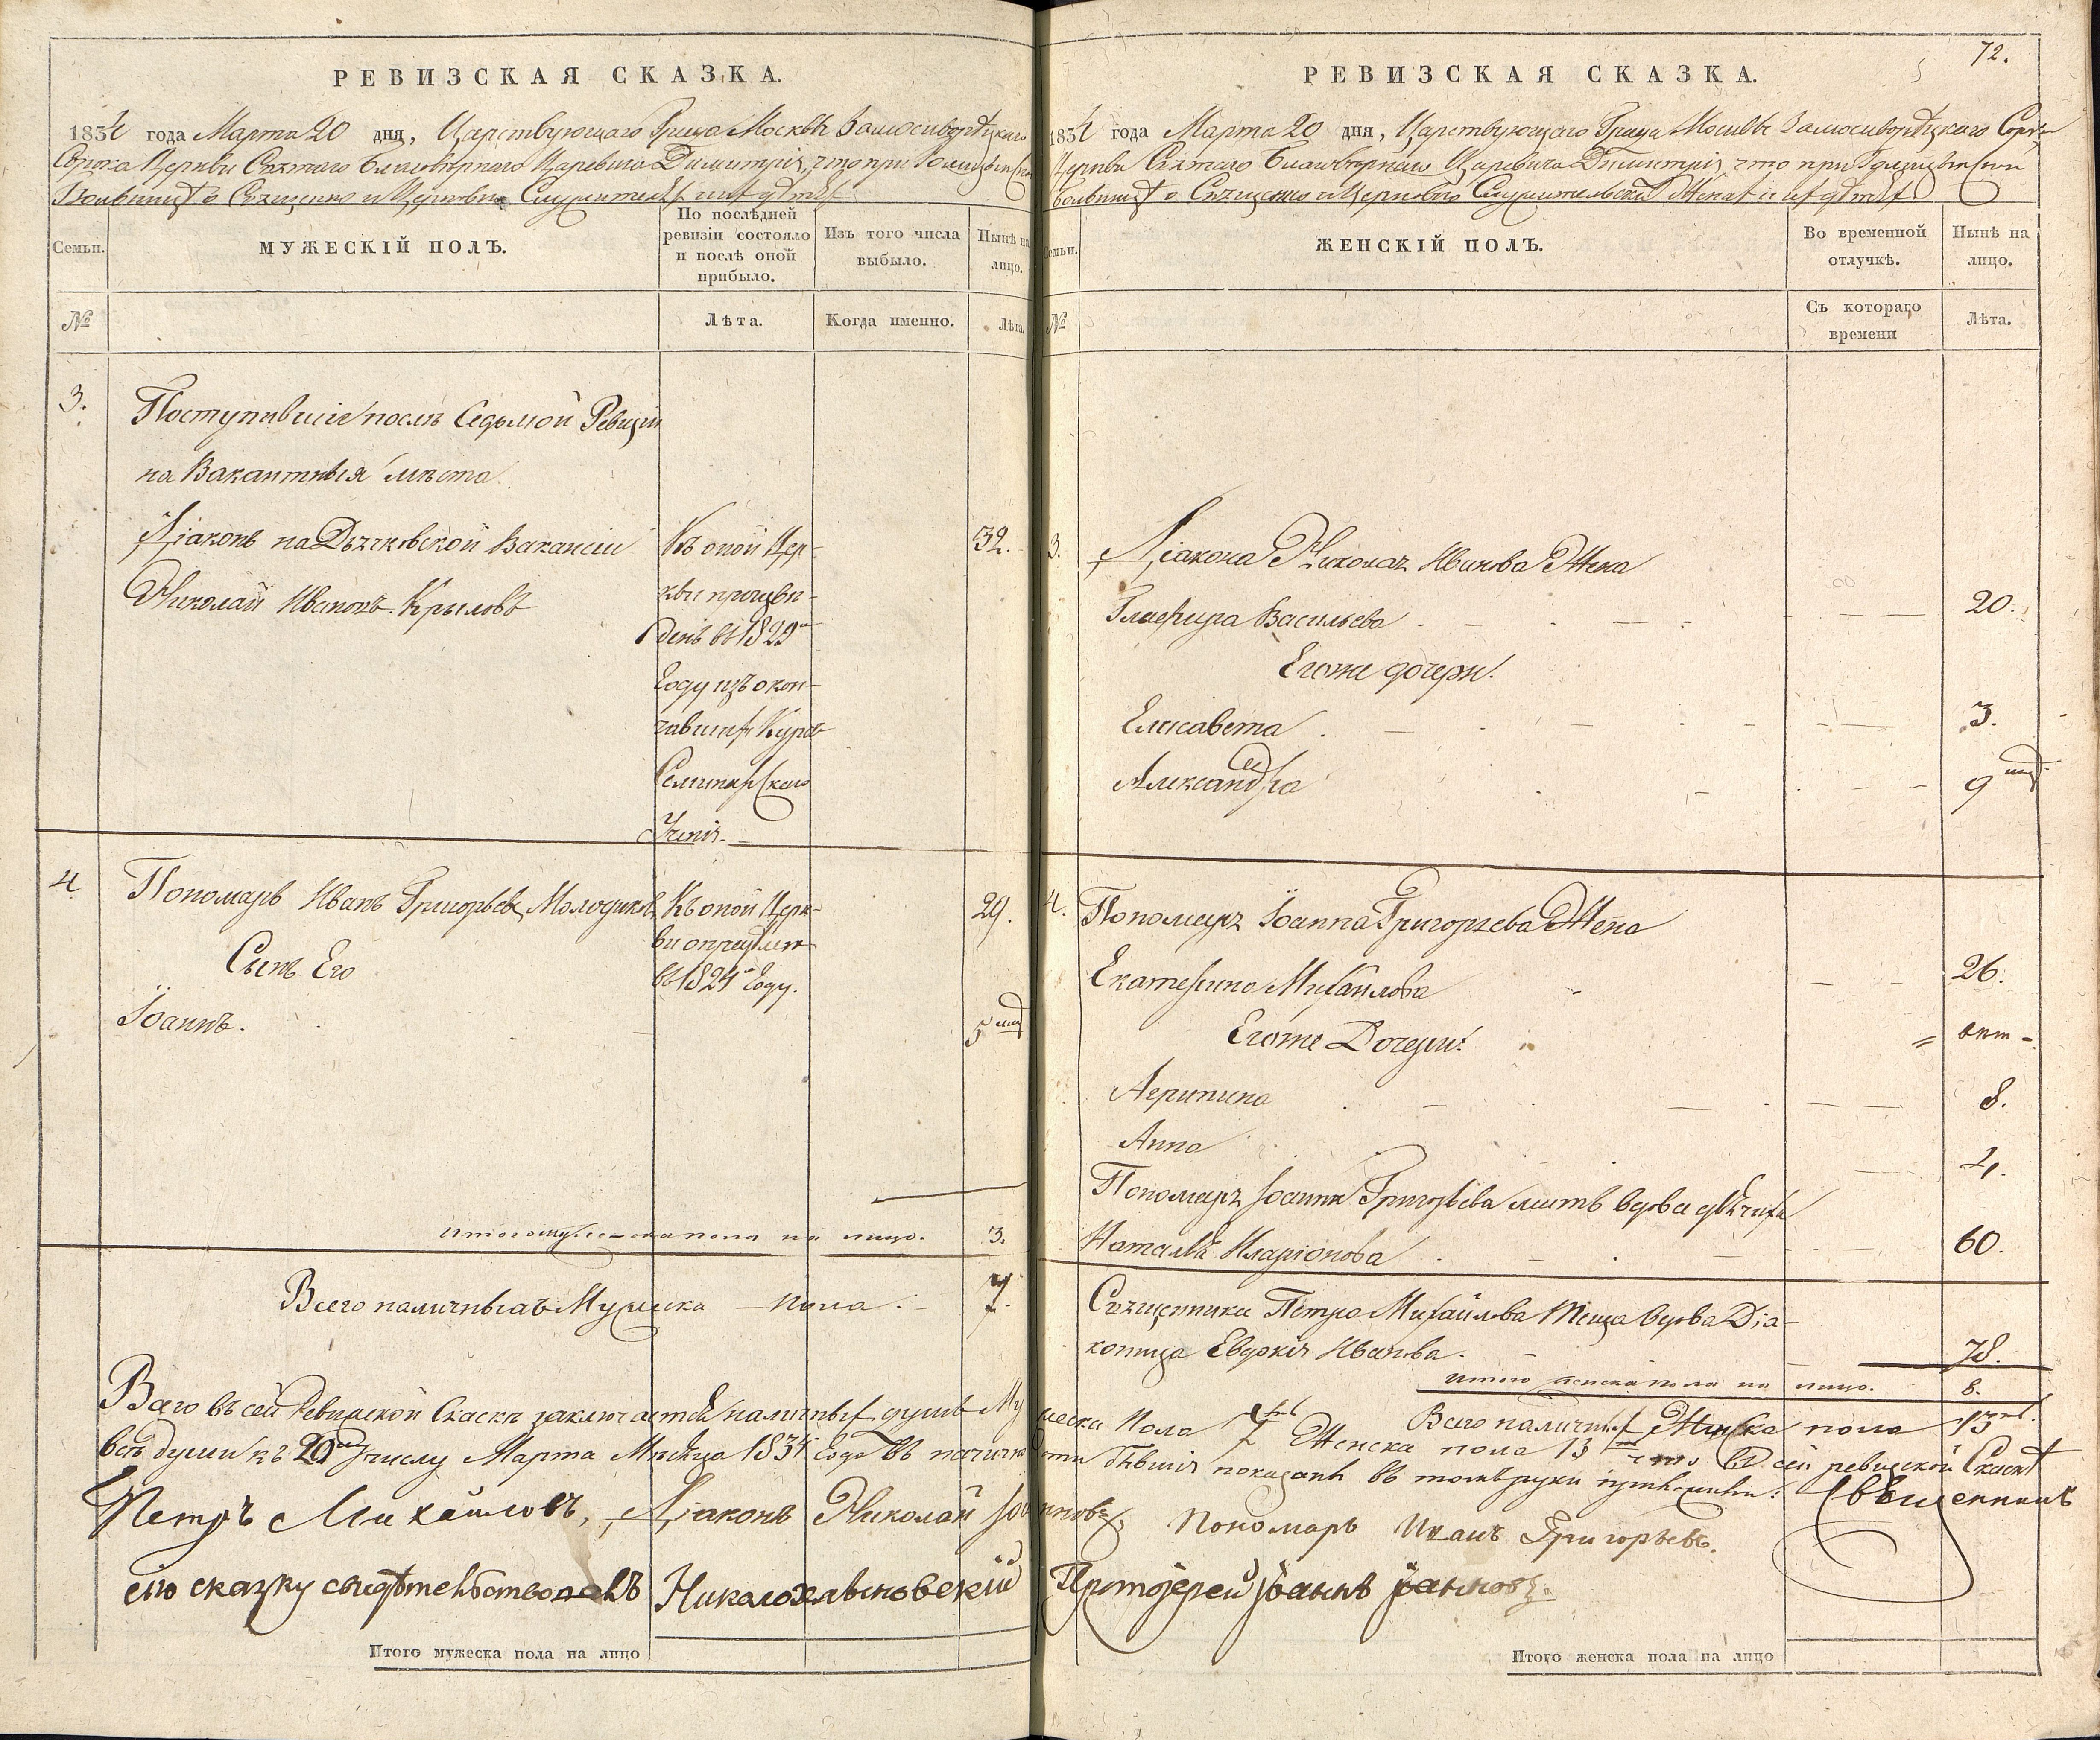 РЕВИЗСКАЯ СКАЗКА.
1834 года Марта 20 дня, Царствующаго Града Москвы Замоскворѣцкаго
Сорока Церкви Святаго Благовѣрнаго Царевича Димитрія, что при Голицынской
Больницѣ о Священно и Церковно Служителяхъ и ихъ дѣтяхъ
Семьи.
МУЖЕСКІЙ ПОЛЪ.
По послѣдней ревизіи состояло и послѣ оной прибыло.
Изъ того числа выбыло.
Нынѣ на лицо.
№
Лѣта.
Когда именно.
Лѣта.
3.
Поступившіе послѣ Седьмой Ревизіи
на Вакантныя мѣста
Діаконъ на Дьячковской Вакансіи
32.
Николай Ивановъ Крыловъ
Къ оной Цер-
кви произве-
денъ въ 1829м
Году изъ окон-
чавшихъ Курсъ
Семинарскаго
Ученія.
4
Пономарь Иванъ Григорьевъ Молодиковъ
29.
Сынъ Его
Іоаннъ.
5 мѣс
Къ оной Церк-
ви опредѣленъ
въ 1824м Году.
Итого мужеска пола на лицо.
3.
Всего наличныхъ Мужеска пола.
7.
Всего въ сей Ревизской Сказкѣ заключается наличныхъ душъ Му
всѣ души къ 20му числу Марта Мѣсяца 1834 Года въ налично
Петръ Михайловъ, Діаконъ Николай Іоа
сію сказку свидѣтельствовалъ Николохлыновскій
Итого мужеска пола на лицо
72.
РЕВИЗСКАЯ СКАЗКА.
1834 года Марта 20 дня, Царствующаго Града Москвы Замоскворѣцкаго Сорока
Церкви Святаго Благовѣрнаго Царевича Димитрія что при Голицынской
Больницѣ о Священно и Церковно Служительскихъ Женахъ и ихъ дѣтяхъ
Семьи.
ЖЕНСКІЙ ПОЛЪ.
Во временной отлучкѣ.
Нынѣ на лицо.
№
Съ котораго времени
Лѣта.
3.
Діакона Николая Иванова Жена
Глафира Васильева
20.
Егоже дочери:
Елисавета
3.
Александра
9 мѣс
4.
Пономаря Іоанна Григорьева Жена
Екатерина Михайлова
26.
Егоже Дочери:
Агрипина
8.
Анна
4.
Пономаря Іоанна Григорьева мать вдова дьячиха
Наталья Иларіонова
60.
Священника Петра Михайлова теща вдова Діа-
коница Евдокія Иванова.
78.
Итого женска пола на лицо.
8.
Всего наличныхъ Женска пола 13
жеска Пола 7 Женска пола 13 что въ сей ревизской Сказкѣ
показаны въ томъ руки приложили: Священникъ
нновъ, Пономарь Иванъ Григорьевъ.
Протоіерей Іоаннъ Іоанновъ.
Итого женска пола на лицо